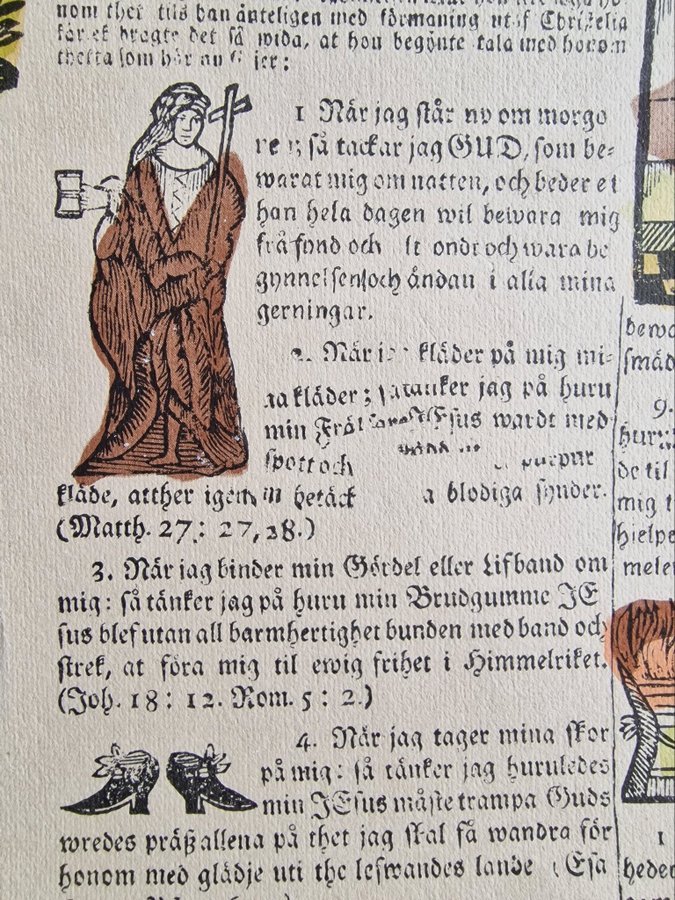 nom thet tils han änteligen med förmaning utaf Christelia
kärlek bragte det så wida, at hon begönte tala med honom
thetta som här
1 När jag står up om morgo-
så tackar jag GUD, som be-
warat mig om natten, och beder et
han hela dagen wil bewara mig
frå synd och ondt och wara be
gynnelsen och ändan i alla mina
gerningar.
2. När kläder på mig mi-
na kläder; så tänker jag på huru
min JEsus wardt med
spott och purpur
kläde, at ther igenom betäck a blodiga synder.
(Matth. 27: 27, 28.)
3. När jag binder min Gördel eller Lifband om
mig: så tänker jag på huru min Brudgumme JE
sus blef utan all barmhertighet bunden med band och
strek, at föra mig til ewig frihet i Himmelriket.
(Joh. 18: 12. Rom. 5: 2.)
4. När jag tager mina skor
på mig: så tänker jag huruledes
min JEsus måste trampa Guds
wredes präß allena på thet jag skal få wandra för
honom med glädje uti the lefwandes lande (Esa
9.
de til
mig
hielpe
1
heder